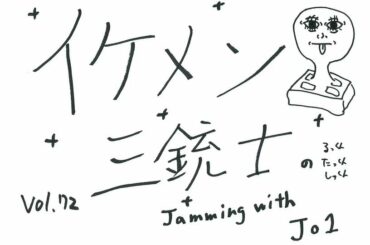 イケメン
三銃士
の
ふっくん
たっくん
しっくん
Vol.72
Jamming with
Jo1